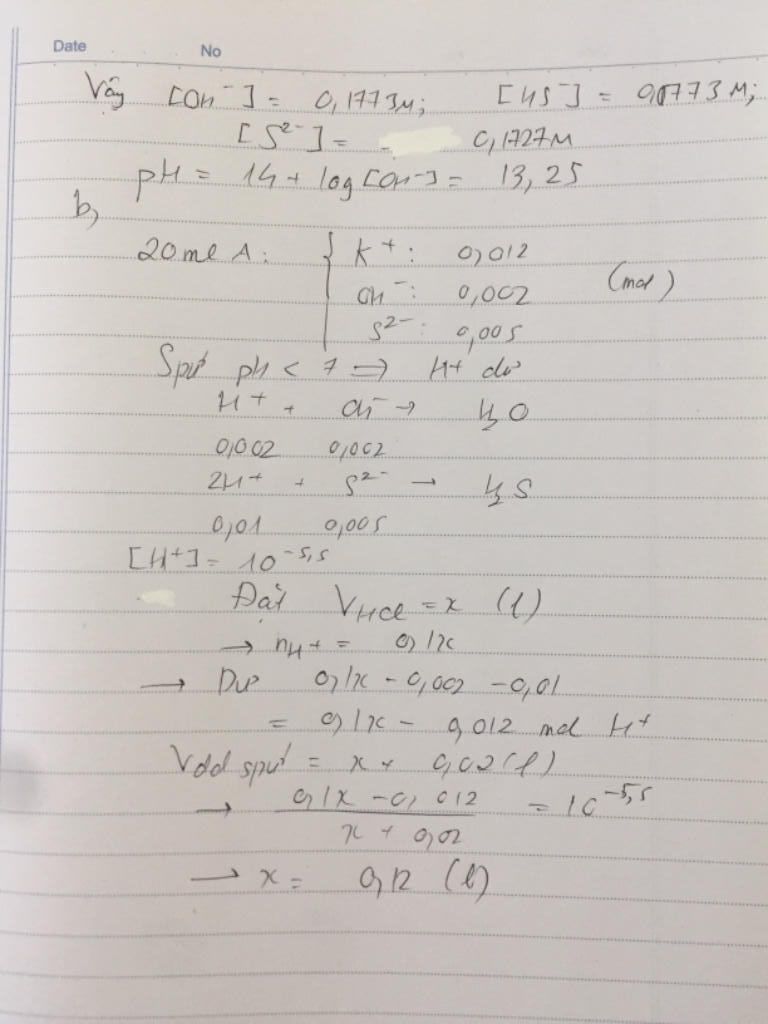 Date No
Vậy [OH⁻] = 0,1773M; [HS⁻] = 0,0773M;
[S²⁻] = 0,1727M
pH = 14 + log[OH⁻] = 13,25
b,
20ml A: { K⁺: 0,012
OH⁻: 0,002 (mol)
S²⁻: 0,005
Spư pH < 7 => H⁺ dư
H⁺ + OH⁻ → H₂O
0,002 0,002
2H⁺ + S²⁻ → H₂S
0,01 0,005
[H⁺] = 10⁻⁵,⁵
Đặt V_HCl = x (l)
→ n_H⁺ = 0,1x
→ Dư 0,1x - 0,002 - 0,01
= 0,1x - 0,012 mol H⁺
Vdd spư = x + 0,02 (l)
→ (0,1x - 0,012) / (x + 0,02) = 10⁻⁵,⁵
→ x = 0,12 (l)